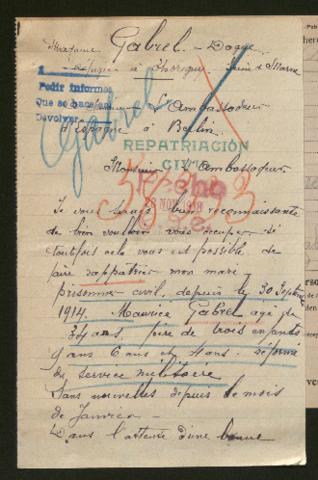 Madame Gabrel - Dogue
Réfugiée à Thorigny Seine & Marne
Pedir informes
Que se hace
Devolver
Gabrel
L'Ambassadeur
d'espagne à Berlin
REPATRIACIÓN
CIVIL
Monsieur l'Ambassadeur
NOV 1918
Je vous serais bien reconnaissante
de bien vouloir vous occuper si
toutefois cela vous est possible, de
faire rapatrier mon mari
prisonnier civil, depuis le 30 Septbre
1914. Maurice Gabrel agé de
34 ans. père de trois enfants
9 ans 6 ans et 4 ans. réformé
du service militaire
Sans nouvelles depuis le mois
de Janvier -
Dans l'attente d'une bonne